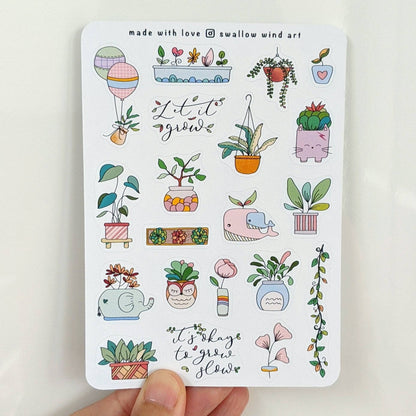 made with love swallow wind art
Let it
grow
it's okay
to grow
slow